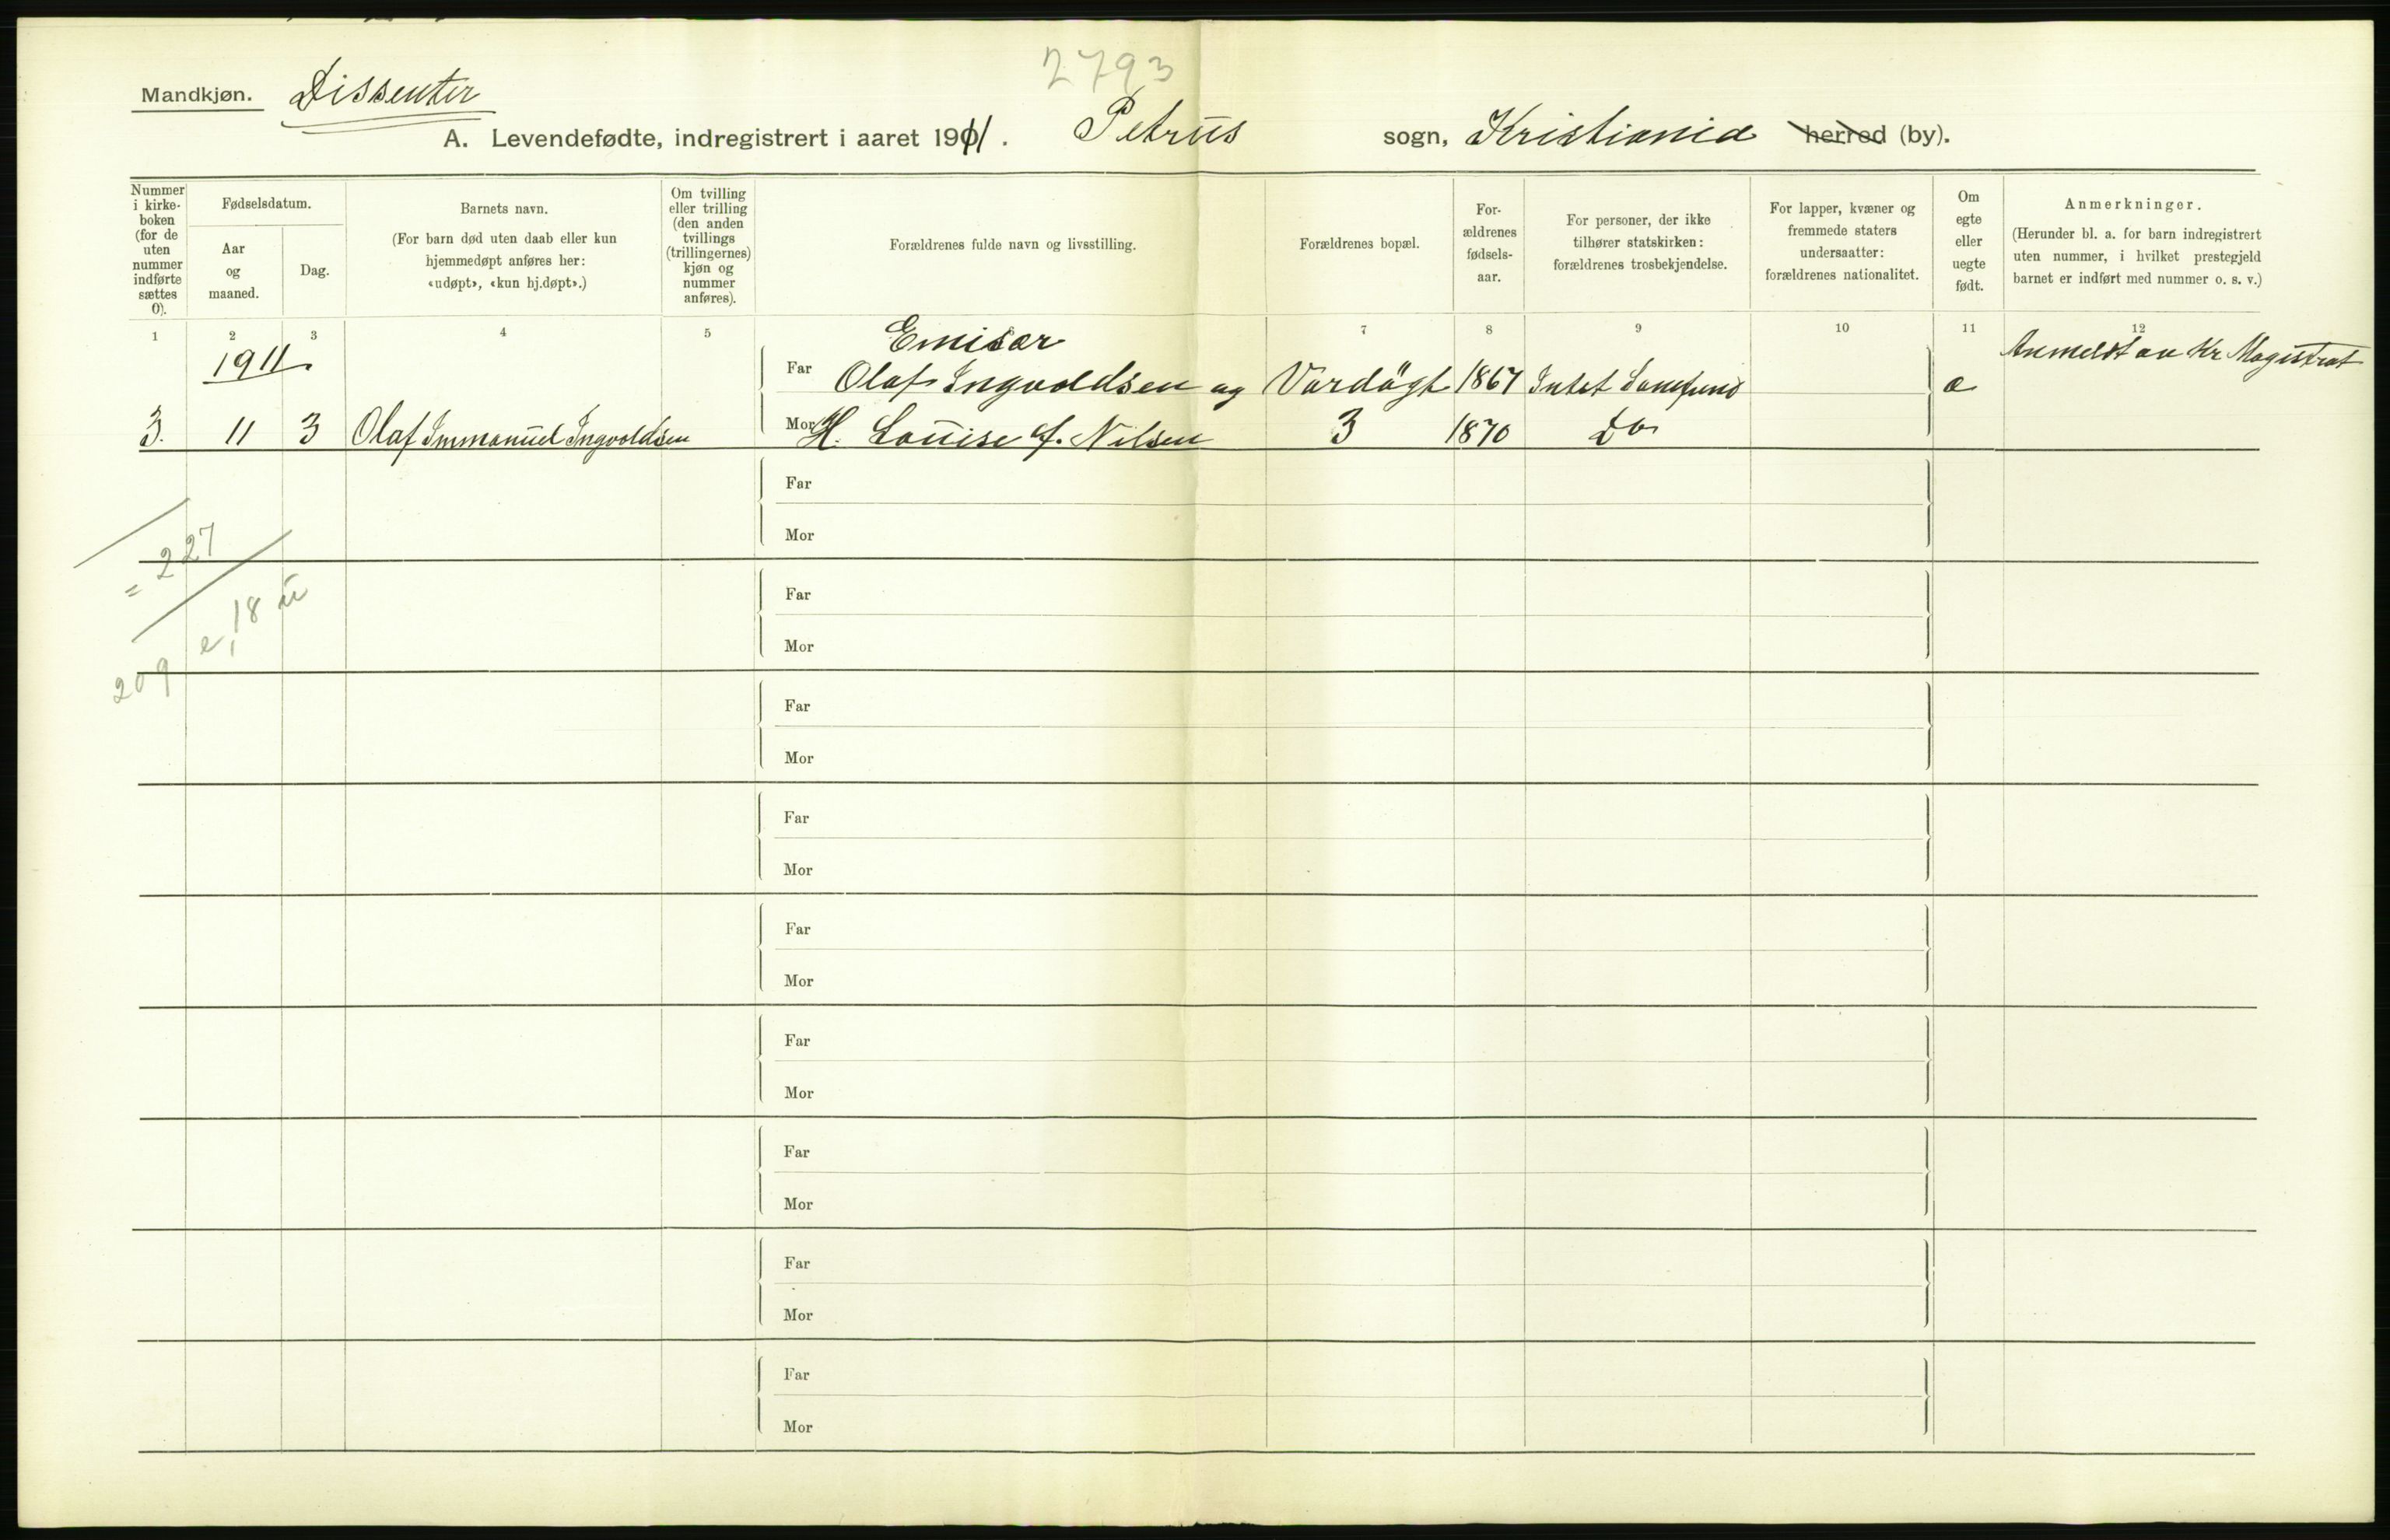 2793
Mandkjøn. Dissenter
A. Levendefødte, indregistrert i aaret 1911. Petrus sogn, Kristiania herred (by).
Nummer i kirke-boken (for de uten nummer indførte sættes 0).
Fødselsdatum.
Aar og maaned.
Dag.
Barnets navn.
(For barn død uten daab eller kun hjemmedøpt anføres her: «udøpt», «kun hj.døpt».)
Om tvilling eller trilling (den anden tvillings (trillingernes) kjøn og nummer anføres).
Forældrenes fulde navn og livsstilling.
Forældrenes bopæl.
For-ældrenes fødsels-aar.
For personer, der ikke tilhører statskirken: forældrenes trosbekjendelse.
For lapper, kvæner og fremmede staters undersaatter: forældrenes nationalitet.
Om egte eller uegte født.
Anmerkninger.
(Herunder bl. a. for barn indregistrert uten nummer, i hvilket prestegjeld barnet er indført med nummer o. s. v.)
1 2 3 4 5 7 8 9 10 11 12
1911. Emisær Anmeldt av Kr Magistrat
Far Olaf Ingvoldsen og Vardögt 1867 Intet Samfund e
3. 11 3 Olaf Immanuel Ingvoldsen Mor H. Louise f. Nilsen 3 1870 Do
Far
Mor
= 227
Far
e, 18 u
Mor
209
Far
Mor
Far
Mor
Far
Mor
Far
Mor
Far
Mor
Far
Mor
Far
Mor